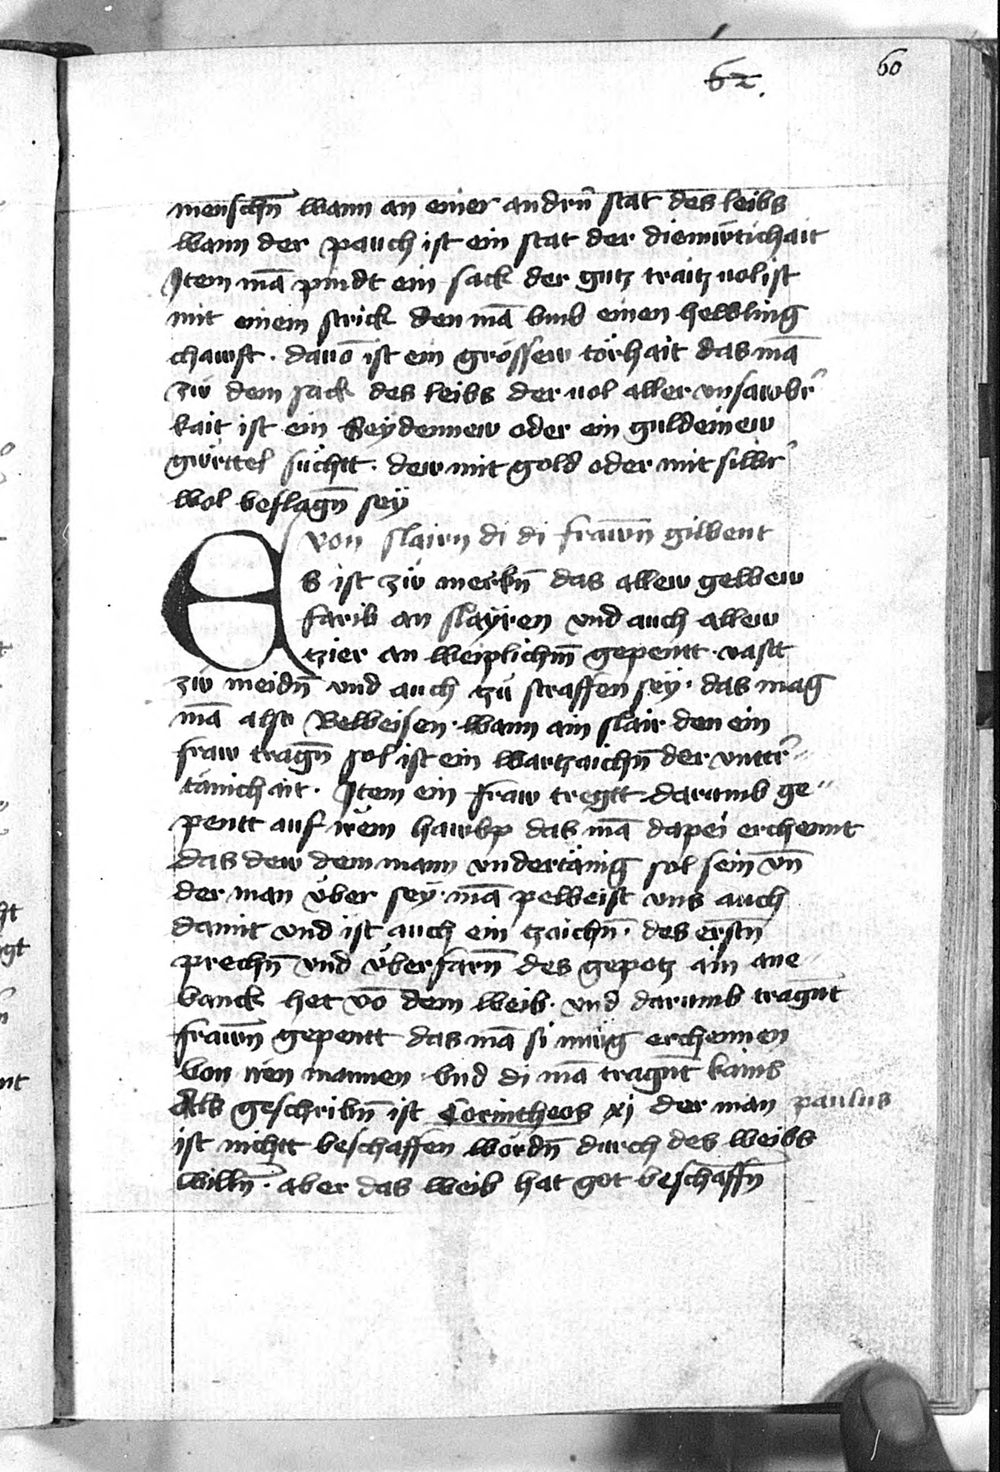 62.
60
menschn̄ wann an einer andrn̄ stat des leibs
wann der pauch ist ein stat der diemütichait
Jtem mā pindt ein sack der gutz traitz uol ist
mit einem strick den mā vmb einen helbling
chawft . dauō ist ein grössew törhait das mā
zw dem sack des leibs der uol aller vnsawbr̄
kait ist ein Seydennew oder ein guldeinew
gürttel süchtt . dew mit gold oder mit silbr̄
wol beslagn̄ sey
von slairn di di frawn̄ gilbent
Es ist zw merkn̄ das allew gelbew
farib an slayren vnd auch allew
tzier an weiplichm̄ gepentt vastt
zw meidn̄ vnd auch tzu straffen sey . das mag
mā also Beweisen . wann ain slair den ein
fraw tragn̄ sol ist ein wartzaichn̄ der vnttr̄
tänichait . Jtem ein fraw tregtt darumb ge
pentt auf irem hawbp das mā dapei erchennt
das dew dem mann vndertänig sol sein vn̄
der man über sey . mā peweist vns auch
damit vnd ist auch ein tzaichn̄ . des erstn̄
prechn̄ vnd überfarn̄ des gepotz ain ane
vanck het vō dem weib . vnd darumb tragn̄t
frawn̄ gepentt das mā si müg erchennen
von iren mannen vnd di mā tragn̄t kains
Als geschribn̄ ist Corintheos xj der man paulus
ist nichtt beschaffen wordn̄ durch des weibs
willn̄ . aber das weib hat got beschaffn̄